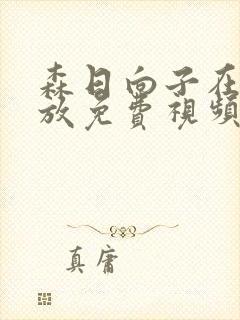 森日向子在
放免費視頻
真庸